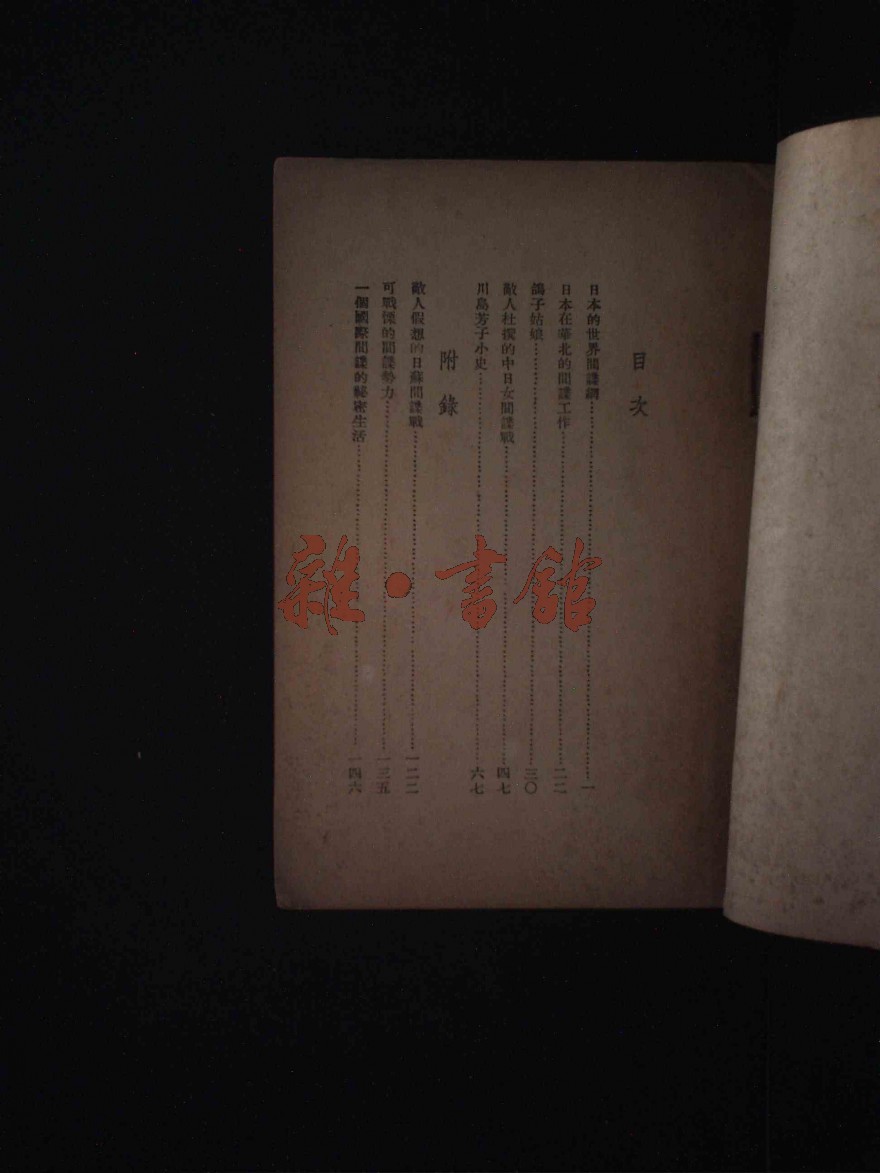 目次
日本的世界間諜網……一
日本在華北的間諜工作……二二
鴿子姑娘……三〇
敵人杜撰的中日女間諜戰……四七
川島芳子小史……六七
附錄
敵人假想的日蘇間諜戰……一二二
可戰慄的間諜勢力……一三五
一個國際間諜的秘密生活……一四六
雜·書館